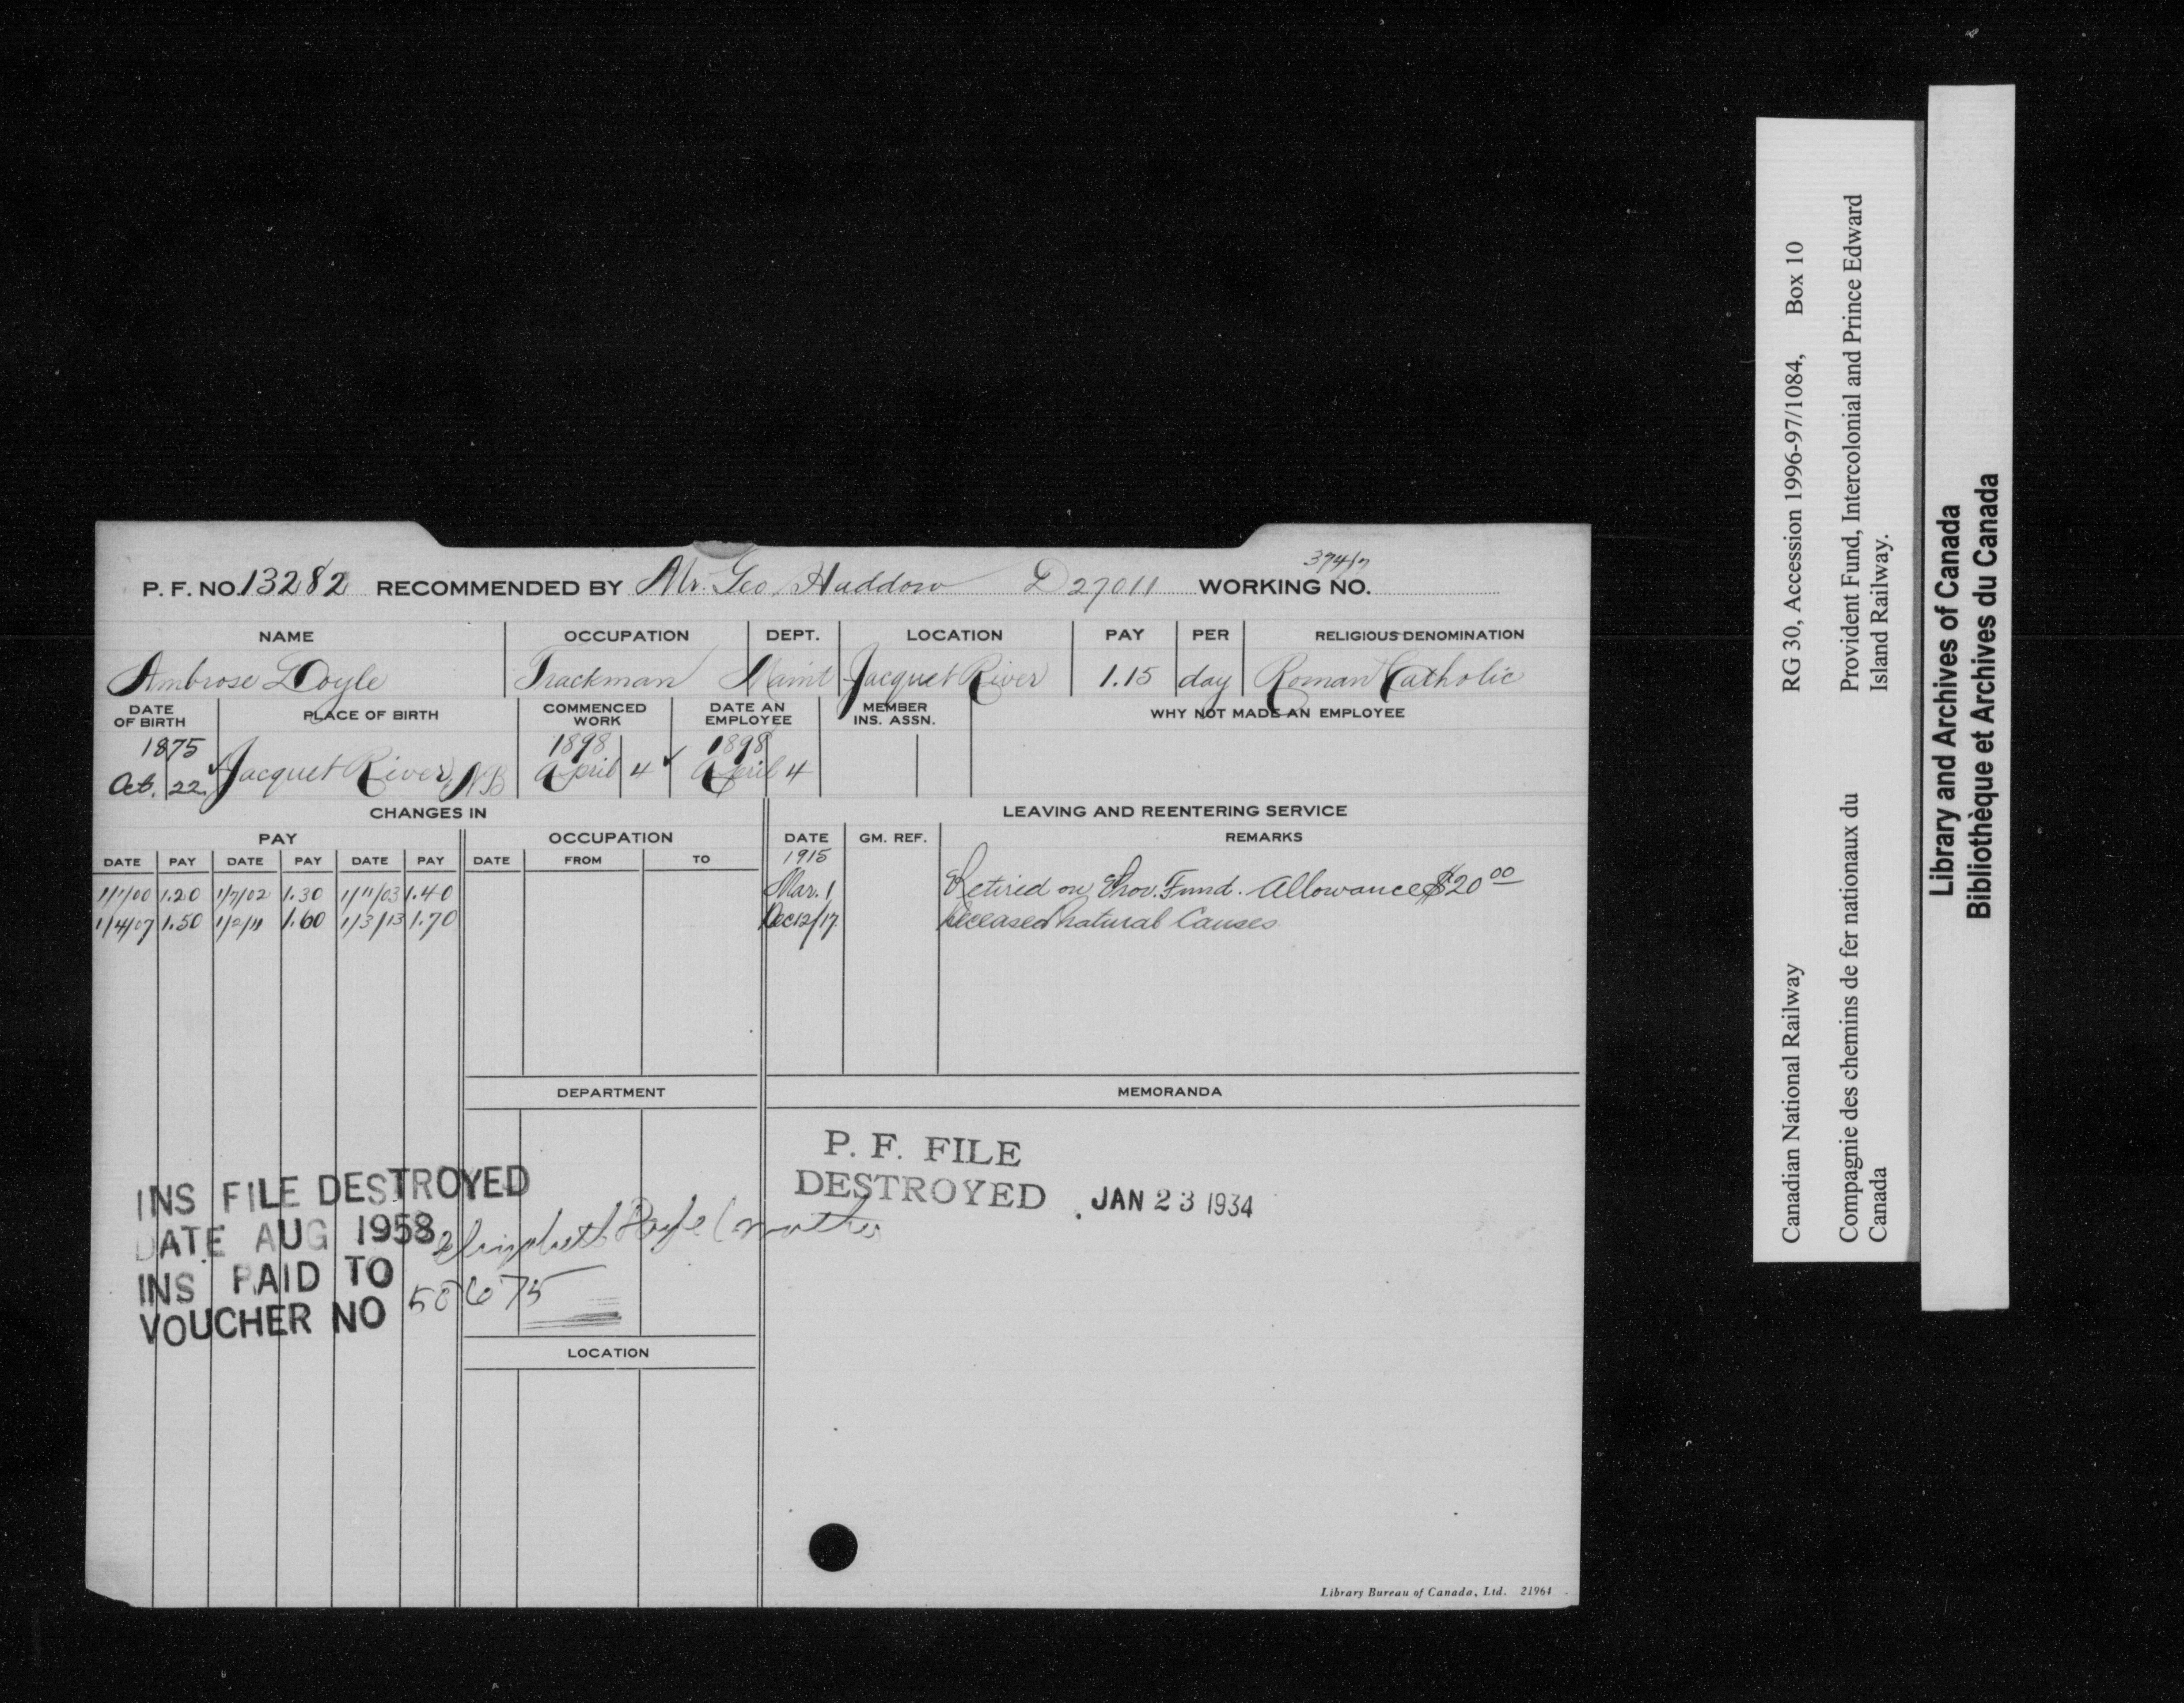 P. F. NO. 13282 RECOMMENDED BY Mr. Geo Haddow D27011 WORKING NO. 374/7
NAME OCCUPATION DEPT. LOCATION PAY PER RELIGIOUS DENOMINATION
Ambrose Doyle Trackman Maint Jacquet River 1.15 day Roman Catholic
DATE OF BIRTH PLACE OF BIRTH COMMENCED WORK DATE AN EMPLOYEE MEMBER INS. ASSN. WHY NOT MADE AN EMPLOYEE
1875 1898 1898
Oct. 22. Jacquet River, NB April 4 April 4
CHANGES IN LEAVING AND REENTERING SERVICE
PAY OCCUPATION DATE GM. REF. REMARKS
DATE PAY DATE PAY DATE PAY DATE FROM TO 1915
1/7/00 1.20 1/7/02 1.30 1/11/03 1.40 Mar. 1 Retired on Prov. Fund. Allowance $20 00
1/4/07 1.50 1/2/11 1.60 1/3/13 1.70 Dec12/17. Deceased Natural Causes
DEPARTMENT MEMORANDA
P. F. FILE
DESTROYED . JAN 23 1934
INS FILE DESTROYED
DATE AUG 1958
INS PAID TO Elizabeth Doyle (mother
VOUCHER NO 50675
LOCATION
Library Bureau of Canada, Ltd. 21964
Canadian National Railway RG 30, Accession 1996-97/1084, Box 10
Compagnie des chemins de fer nationaux du Provident Fund, Intercolonial and Prince Edward
Canada Island Railway.
Library and Archives of Canada
Bibliothèque et Archives du Canada